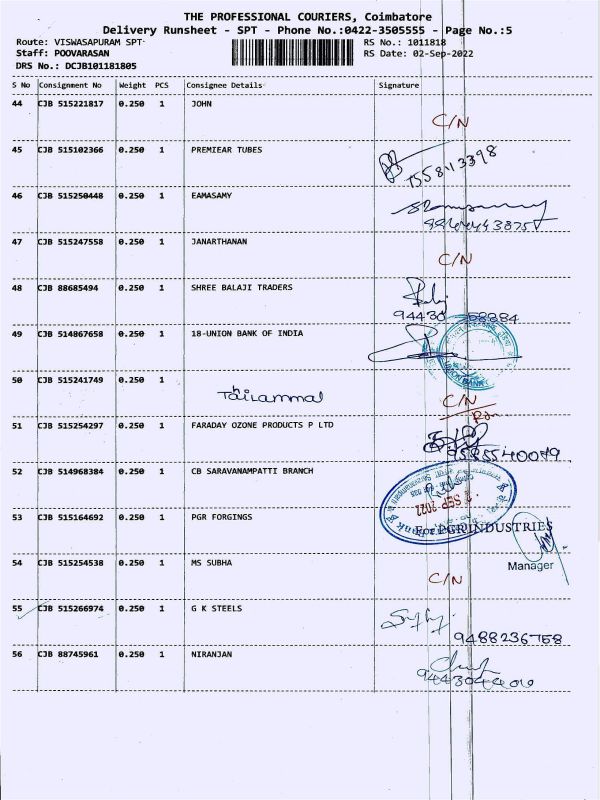 THE PROFESSIONAL COURIERS, Coimbatore
Delivery Runsheet - SPT - Phone No.:0422-3505555 - Page No.:5
Route: VISWASAPURAM SPT
RS No.: 1011818
Staff: POOVARASAN
RS Date: 02-Sep-2022
DRS No.: DCJB101181805
S No Consignment No Weight PCS Consignee Details Signature
44 CJB 515221817 0.250 1 JOHN
C/N
45 CJB 515102366 0.250 1 PREMIEAR TUBES
46 CJB 515250448 0.250 1 EAMASAMY
47 CJB 515247558 0.250 1 JANARTHANAN
C/N
48 CJB 88685494 0.250 1 SHREE BALAJI TRADERS
49 CJB 514867658 0.250 1 18-UNION BANK OF INDIA
50 CJB 515241749 0.250 1
Thailammal
C/N
51 CJB 515254297 0.250 1 FARADAY OZONE PRODUCTS P LTD
9585540079
52 CJB 514968384 0.250 1 CB SARAVANAMPATTI BRANCH
SEP 2022
53 CJB 515164692 0.250 1 PGR FORGINGS
For PGR INDUSTRIES
Manager
54 CJB 515254538 0.250 1 MS SUBHA
C/N
55 CJB 515266974 0.250 1 G K STEELS
9488236758
56 CJB 88745961 0.250 1 NIRANJAN